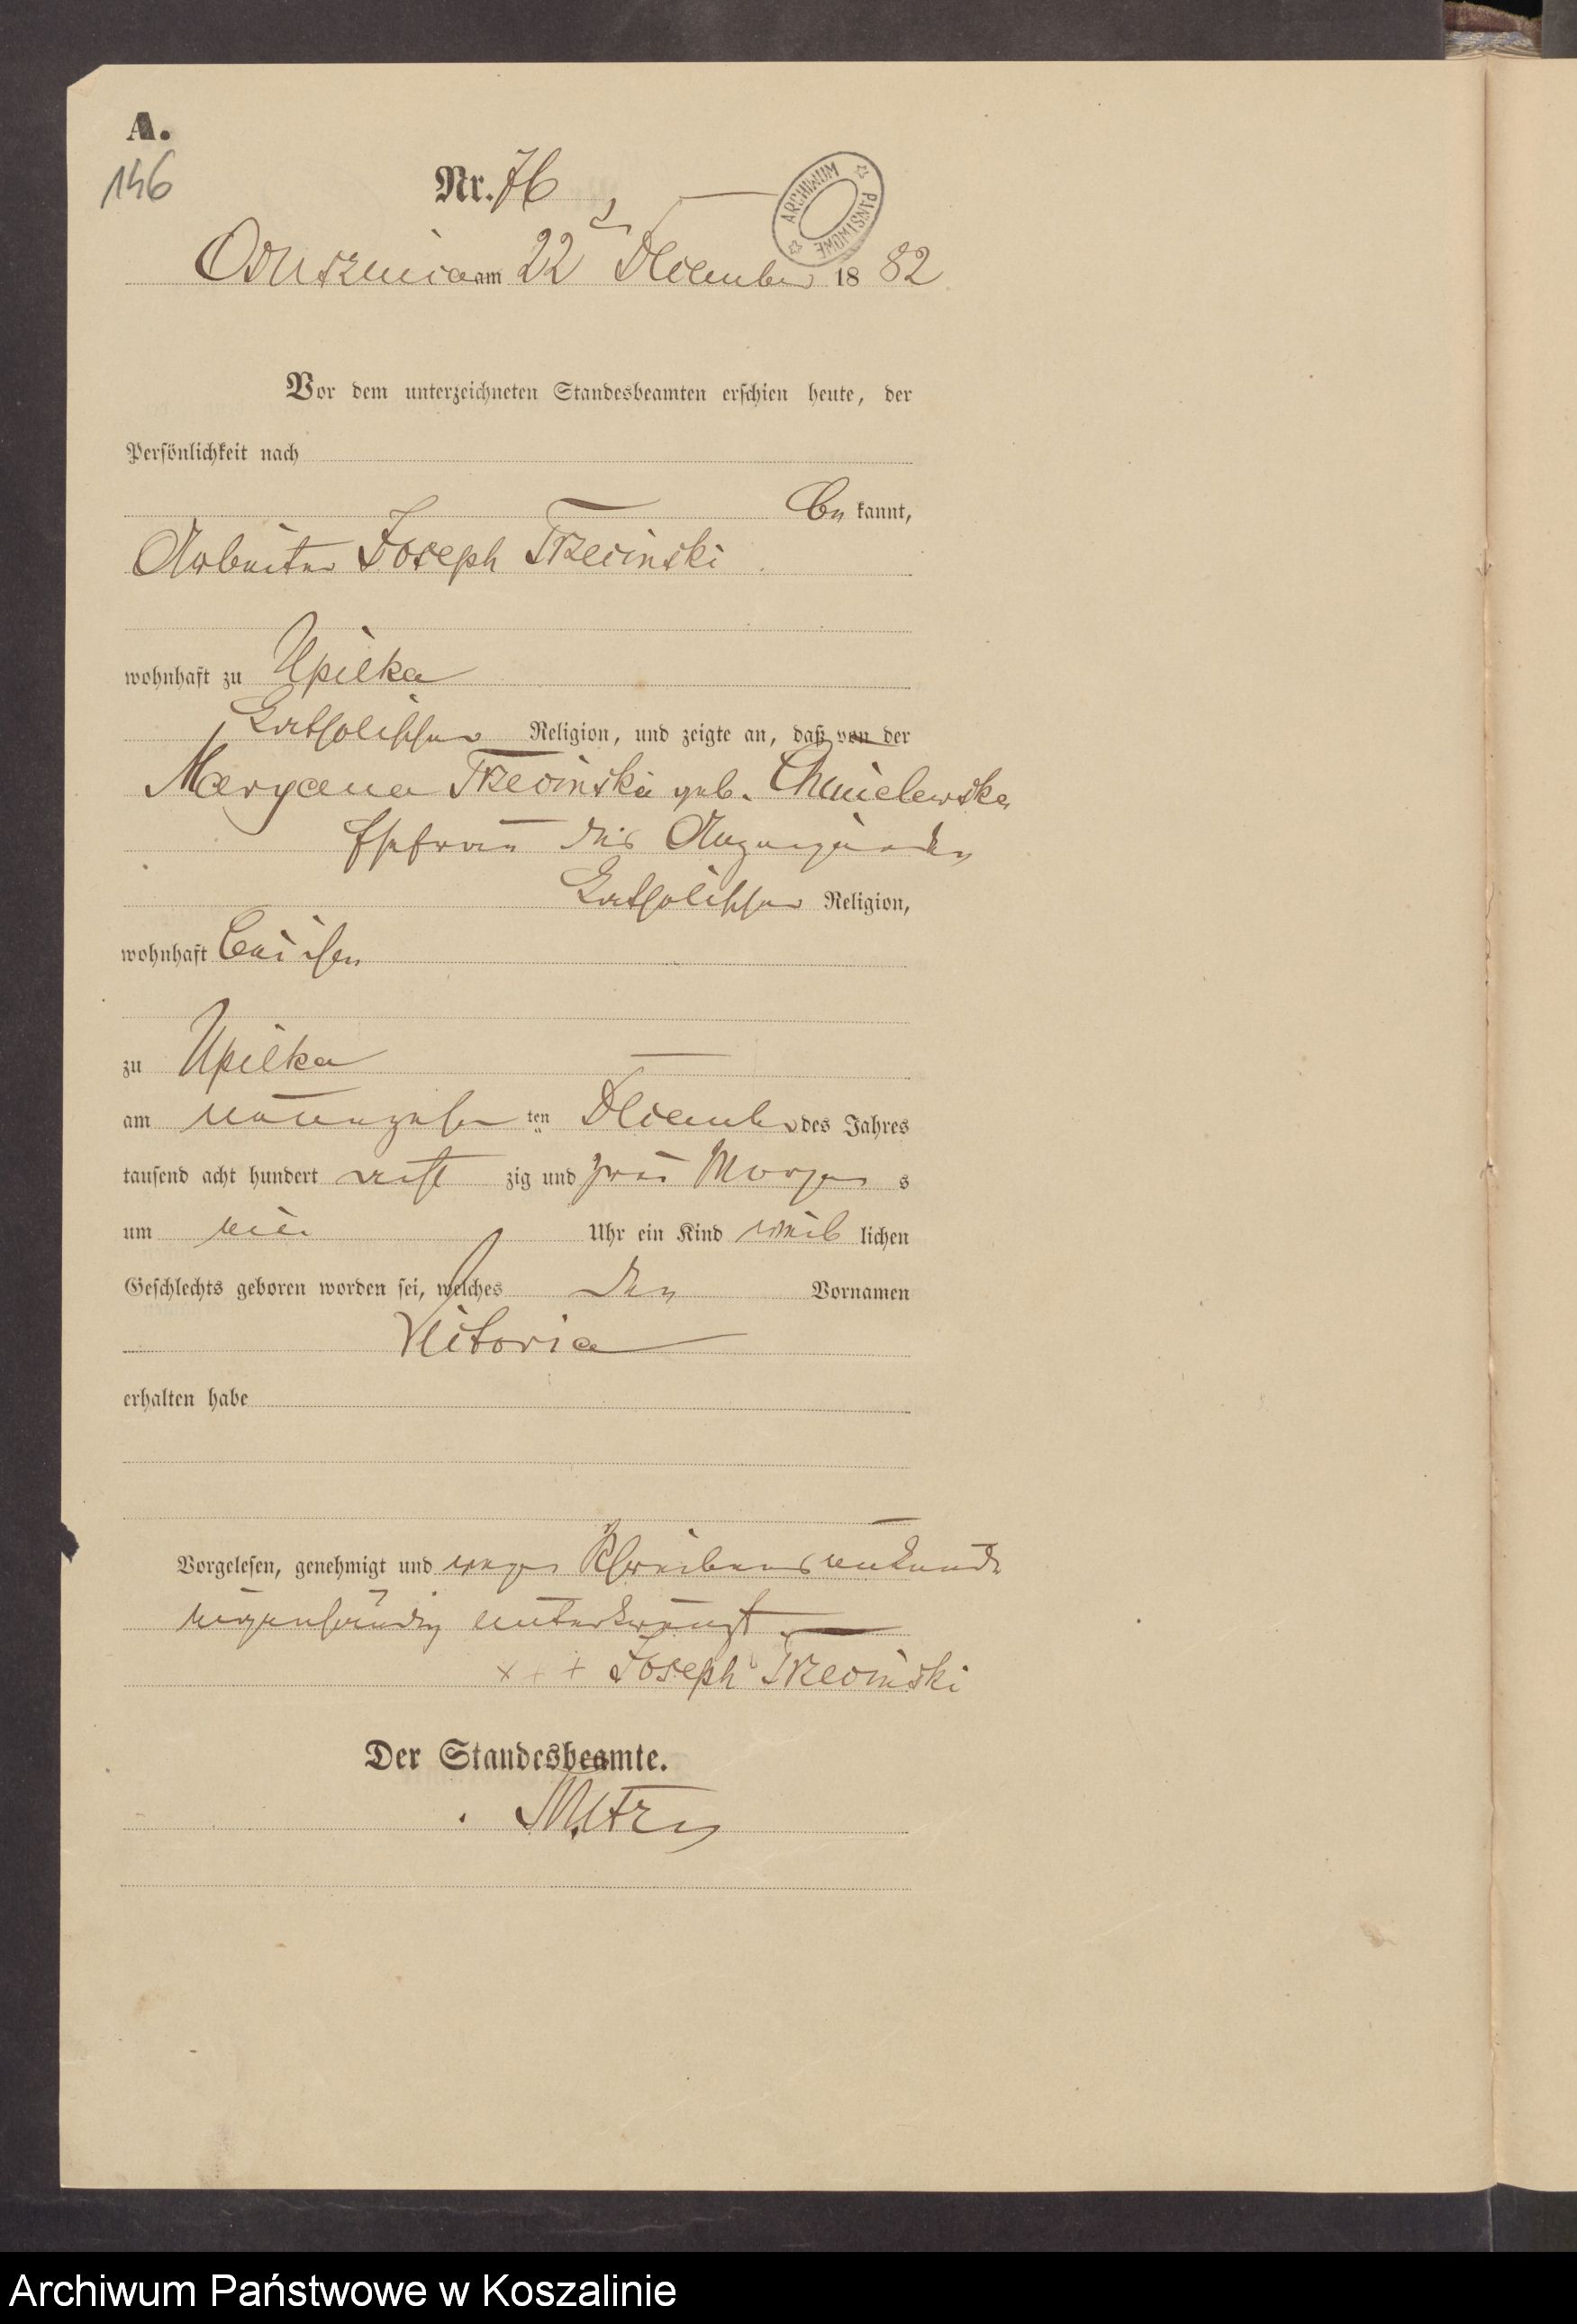 A.
146
Nr. 76
ARCHIWUM PAŃSTWOWE
Ossusznica am 22 December 1882
Vor dem unterzeichneten Standesbeamten erschien heute, der
Persönlichkeit nach
be kannt,
Arbeiter Joseph Trzecinski
wohnhaft zu Upilka
katholischer Religion, und zeigte an, daß von der
Maryana Trzecinski geb. Chmielewska
Ehefrau des Anzeigenden
katholischer Religion,
wohnhaft bei ihm
zu Upilka
am neunzehn ten December des Jahres
tausend acht hundert acht zig und zwei Morgens
um vier Uhr ein Kind weib lichen
Geschlechts geboren worden sei, welches den Vornamen
Victoria
erhalten habe
Vorgelesen, genehmigt und wegen Schreibensunkunde
eigenhändig unterkreuzt.
+ + + Joseph Trzecinski
Der Standesbeamte.
Archiwum Państwowe w Koszalinie